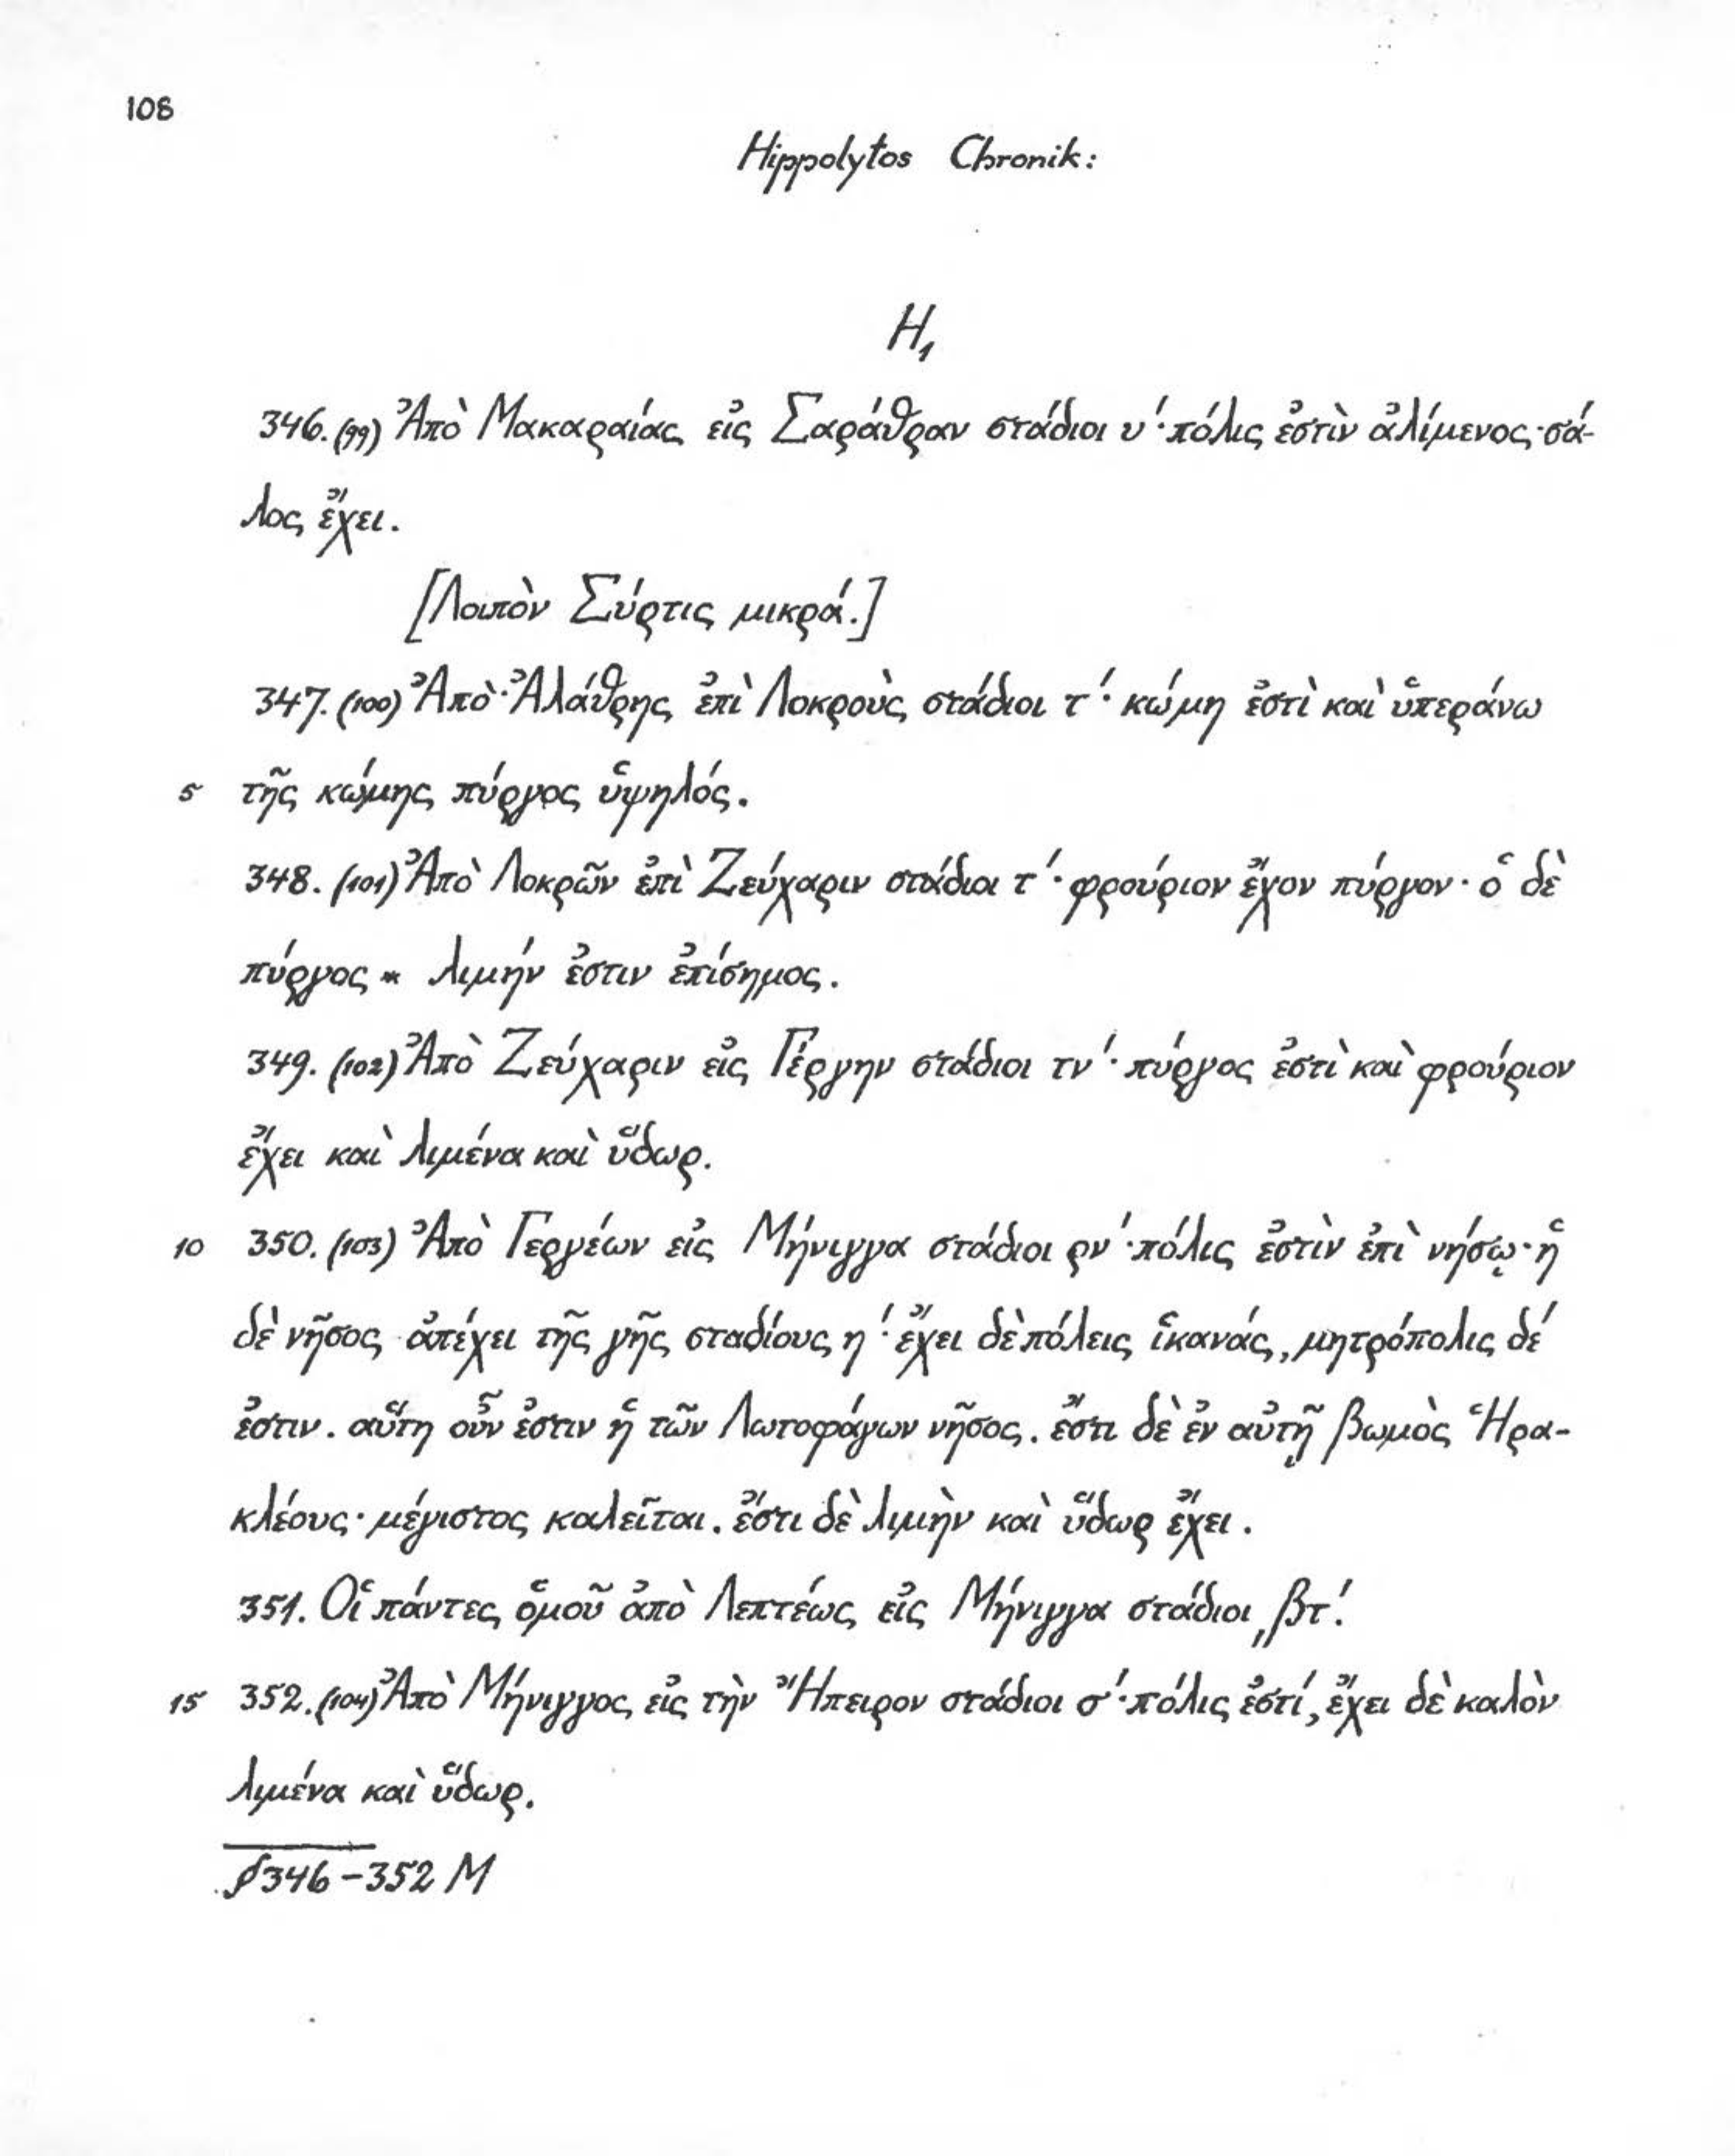 108
Hippolytos Chronik:
H₁
346. (99) Ἀπὸ Μακαραίας εἰς Σαράθραν στάδιοι υ´· πόλις ἐστὶν ἀλίμενος· σά-
λος ἔχει.
[Λοιπὸν Σύρτις μικρά.]
347. (100) Ἀπὸ Ἀλάθρης ἐπὶ Λοκροὺς στάδιοι τ´· κώμη ἐστὶ καὶ ὑπεράνω
5 τῆς κώμης πύργος ὑψηλός.
348. (101) Ἀπὸ Λοκρῶν ἐπὶ Ζεύχαριν στάδιοι τ´· φρούριον ἔχον πύργον· ὁ δὲ
πύργος * λιμήν ἐστιν ἐπίσημος.
349. (102) Ἀπὸ Ζεύχαριν εἰς Γέργην στάδιοι τν´· πύργος ἐστὶ καὶ φρούριον
ἔχει καὶ λιμένα καὶ ὕδωρ.
10 350. (103) Ἀπὸ Γεργέων εἰς Μήνιγγα στάδιοι ρν´· πόλις ἐστὶν ἐπὶ νήσῳ· ἡ
δὲ νῆσος ἀπέχει τῆς γῆς σταδίους η´· ἔχει δὲ πόλεις ἱκανάς, μητρόπολις δέ
ἐστιν. αὕτη οὖν ἐστιν ἡ τῶν Λωτοφάγων νῆσος. ἔστι δὲ ἐν αὐτῇ βωμὸς Ἡρα-
κλέους· μέγιστος καλεῖται. ἔστι δὲ λιμὴν καὶ ὕδωρ ἔχει.
351. Οἱ πάντες ὁμοῦ ἀπὸ Λεπτέως εἰς Μήνιγγα στάδιοι ͵βτ´.
15 352. (104) Ἀπὸ Μήνιγγος εἰς τὴν Ἤπειρον στάδιοι σ´· πόλις ἐστί, ἔχει δὲ καλὸν
λιμένα καὶ ὕδωρ.
§346-352 M